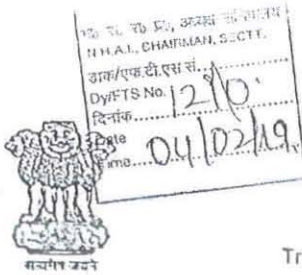 N.H.A.I., CHAIRMAN, SECTT.
डाक/एफ.टी.एस सं.
Dy/FTS No. 1210
दिनांक
Date 04/02/19
सत्यमेव जयते
Tr